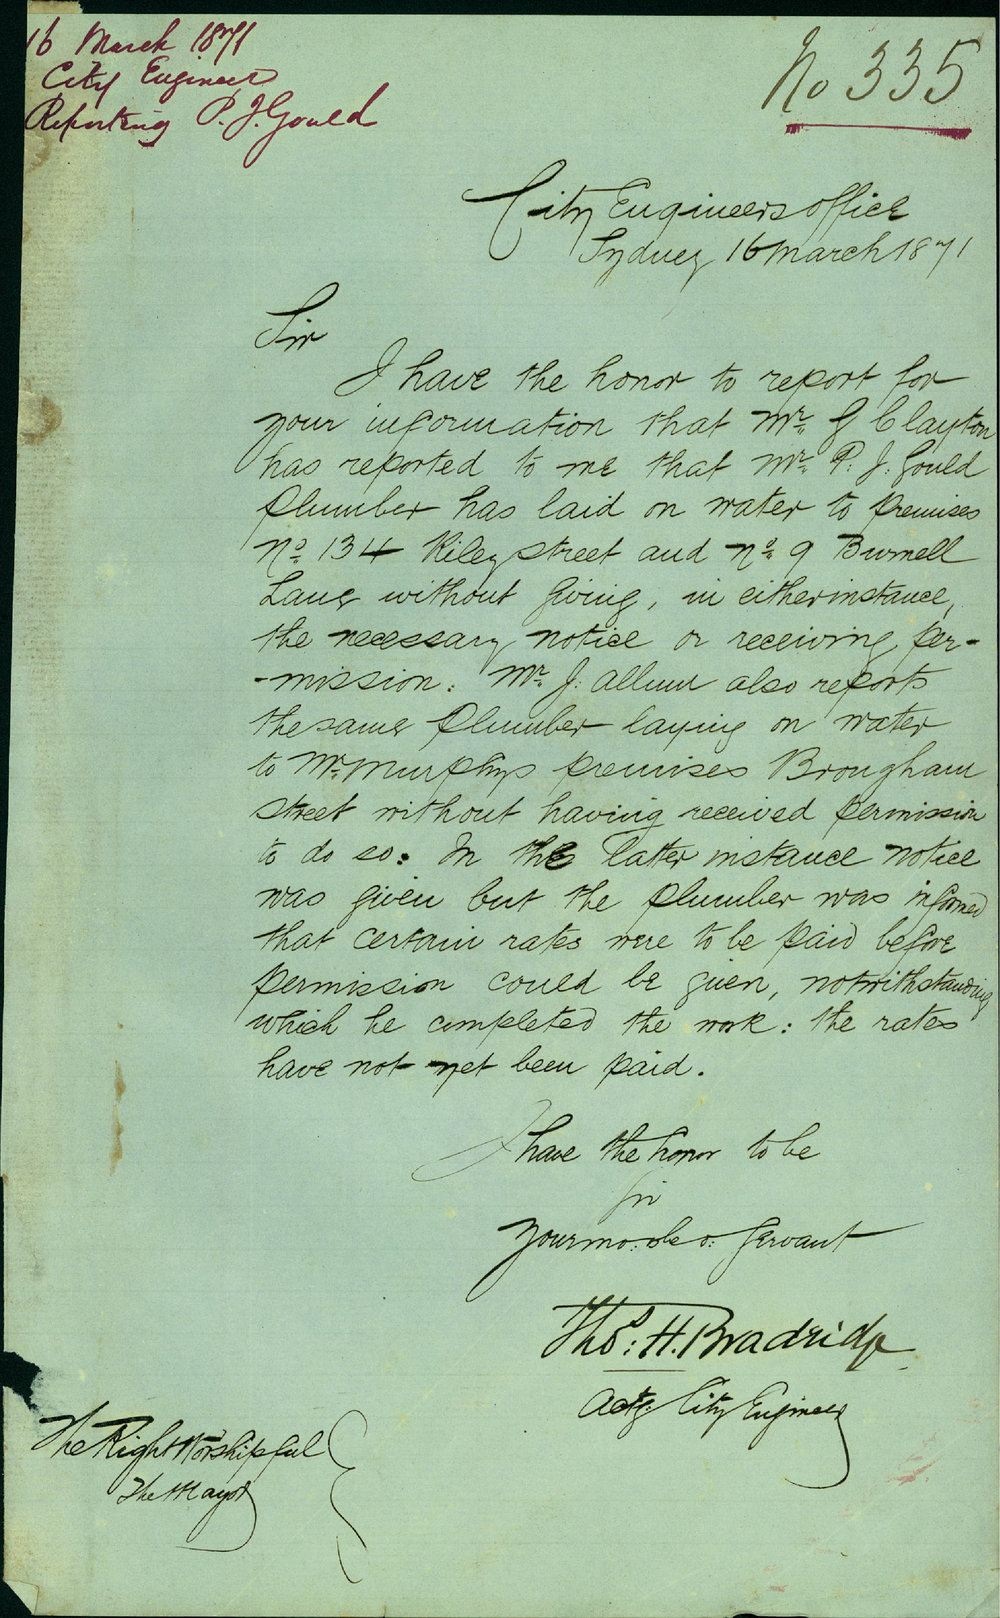 16 March 1871
City Engineer
Reporting P. J. Gould
No 335
City Engineers office
Sydney 16 March 1871
Sir
I have the honor to report for
your information that Mr. G Clayton
has reported to me that Mr. P. J. Gould
Plumber has laid on water to premises
No. 134 Riley street and No. 9 Burnell
Lane without giving, in either instance,
the necessary notice or receiving per-
-mission. Mr. J. Allum also reports
the same Plumber laying on water
to Mr. Murphys premises Brougham
street without having received permission
to do so. In the latter instance notice
was given but the plumber was informed
that certain rates were to be paid before
permission could be given, notwithstanding
which he completed the work: the rates
have not yet been paid.
I have the honor to be
Sir
Your mo: ob o: Servant
Thos: H. Bradridge
Actg. City Engineer
The Right Worshipful
The Mayor